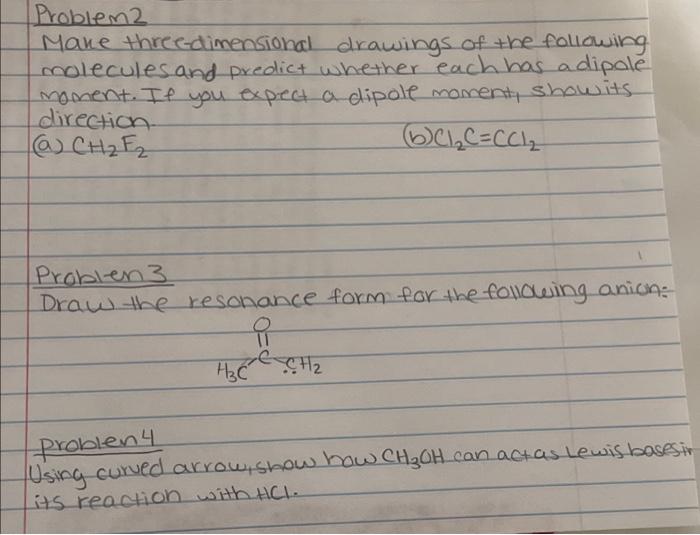 Problem2
Make three-dimensional drawings of the following
molecules and predict whether each has a dipole
moment. If you expect a dipole moment, show its
direction.
(a) CH2F2 (b) Cl2C=CCl2
Problem 3
Draw the resonance form for the following anion:
O
H3C C CH2
problem 4
Using curved arrow, show how CH3OH can act as Lewis bases in
its reaction with HCl.